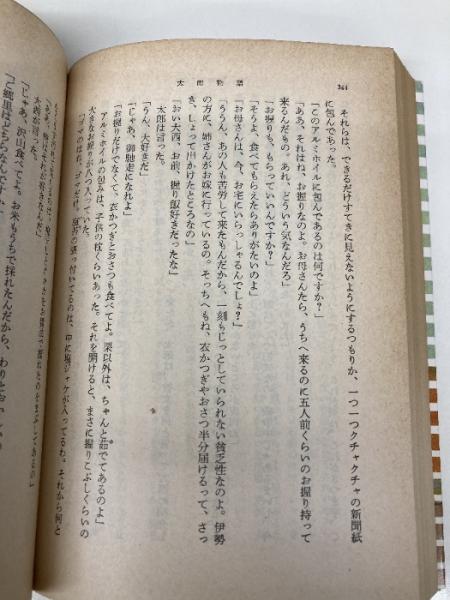 太郎物語
344
それらは、できるだけすてきに見えないようにするつもりか、一つ一つクチャクチャの新聞紙
に包んであった。
「このアルミホイルに包んであるのは何ですか？」
「ああ、それはね、お握りなのよ。お母さんたら、うちへ来るのに五人前くらいのお握り持って
来るんだもの。あれ、どういう気なんだろ」
「お握りも、もらっていいんですか？」
「そうよ、食べてもらえたらありがたいのよ」
「お母さんは、今、お宅にいらっしゃるんでしょ？」
「ううん、あの人も苦労して来たもんだから、一刻もじっとしていられない貧乏性なのよ。伊勢
の方に、姉さんがお嫁に行っているの。そっちへもね、衣かつぎやおさつ半分届けるって、さっ
き、しょって出かけたところなの」
「おい大西、お前、握り飯好きだったな」
太郎は言った。
「うん、大好きだ」
「じゃあ、御馳走になれよ」
「お握りだけでなくて、衣かつぎとおさつも食べてよ。栗以外は、ちゃんと茹でてあるのよ」
アルミホイルの包みは、子供の枕くらいあった。それを開けると、まさに握りこぶしくらいの
大きなお握りが八つ入っていた。
「ゴマのは、ゴマだけ。海苔の張っ付いてるのは、中に塩ジャケが入ってるわ。それから何と
大西が言った。
「じゃあ、沢山食べてよ。お米もうちで採れたんだから、わりとおい
「ご郷里はどちらなんですか